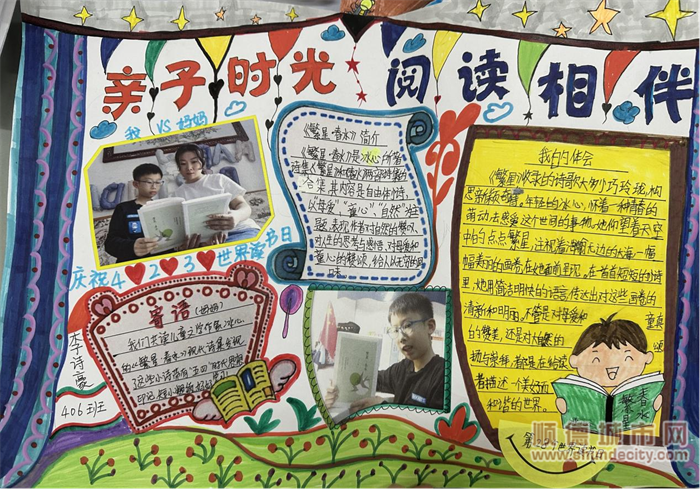 亲子时光 阅读相伴
我 VS 妈妈
庆祝4♡23世界读书日
《繁星·春水》简介
《繁星·春水》是冰心所著
合集,其内容是自由体小诗,
以"母爱""童心""自然"为主
题,表现作者对自然的赞叹,
对人生的思考与感悟,对母爱和
童心的赞颂,给人以无穷的回
味。
我的体会
《繁星》收录的诗歌大多小巧玲珑,构
思新颖巧妙,年轻的冰心,怀着一种青春的
萌动去感受这个世间的事物,她仰望着天空
中的点点繁星,注视着浩瀚无边的大海,一幅
幅美丽的画卷,在她面前呈现,在一首首短短的小诗
里,她用简洁明快的语言,传达出对这些画卷的
清新和明丽,不管是对母爱和
的赞美,还是对大自然的
者描述一个美好而
和谐的世界。
童真
颂
寄语(妈妈)
我们共读儿童文学作家冰心
的《繁星·春水》现代诗集发现
李诗豪
406班
繁星
春水
顺德城市网
shundecity.com